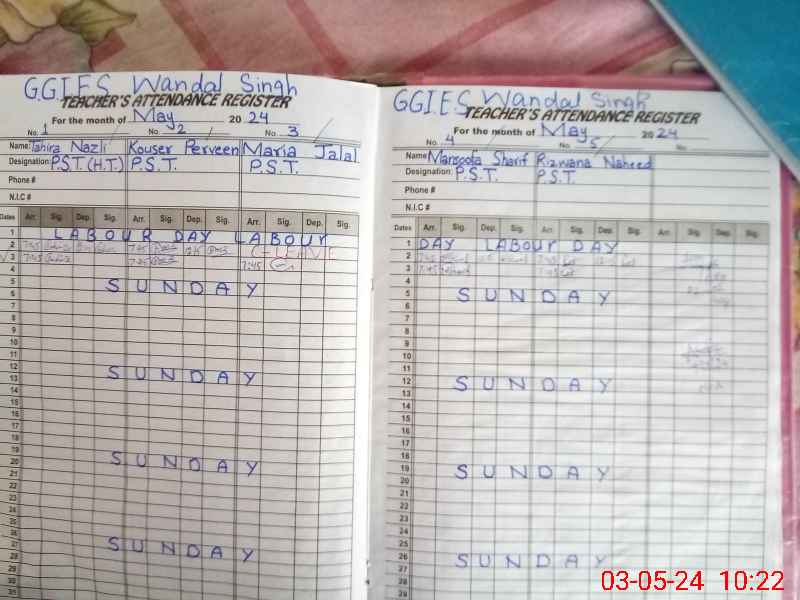 G.G.I.E.S Wandal Singh
TEACHER'S ATTENDANCE REGISTER
For the month of May 2024
No. 1 No. 2 No. 3
Name: Tahira Nazli Kouser Perveen Maria Jalal
Designation: P.S.T. (H.T.) P.S.T. P.S.T.
Phone #
N.I.C #
Dates Arr. Sig. Dep. Sig. Arr. Sig. Dep. Sig. Arr. Sig. Dep. Sig.
1 LABOUR DAY LABOUR
2 7:45 7:45 LEAVE
3 7:45 7:45 7:45
4
5 SUNDAY
6
7
8
9
10
11
12 SUNDAY
13
14
15
16
17
18
19 SUNDAY
20
21
22
23
24
25
26 SUNDAY
27
28
29
30
31
GGI.E.S Wandal Singh
TEACHER'S ATTENDANCE REGISTER
For the month of May 2024
No. 4 No. 5 No.
Name Sharif Rizwana Naheed
Designation: P.S.T. P.S.T.
Phone #
N.I.C #
Dates Arr. Sig. Dep. Sig. Arr. Sig. Dep. Sig. Arr Sig. Dep Sig.
1 DAY LABOUR DAY
2 7:45 7:45
3 7:45 7:45
4
5 SUNDAY
6
7
8
9
10
11
12 SUNDAY
13
14
15
16
17
18
19 SUNDAY
20
21
22
23
24
25
26 SUNDAY
27
28
29
03-05-24 10:22